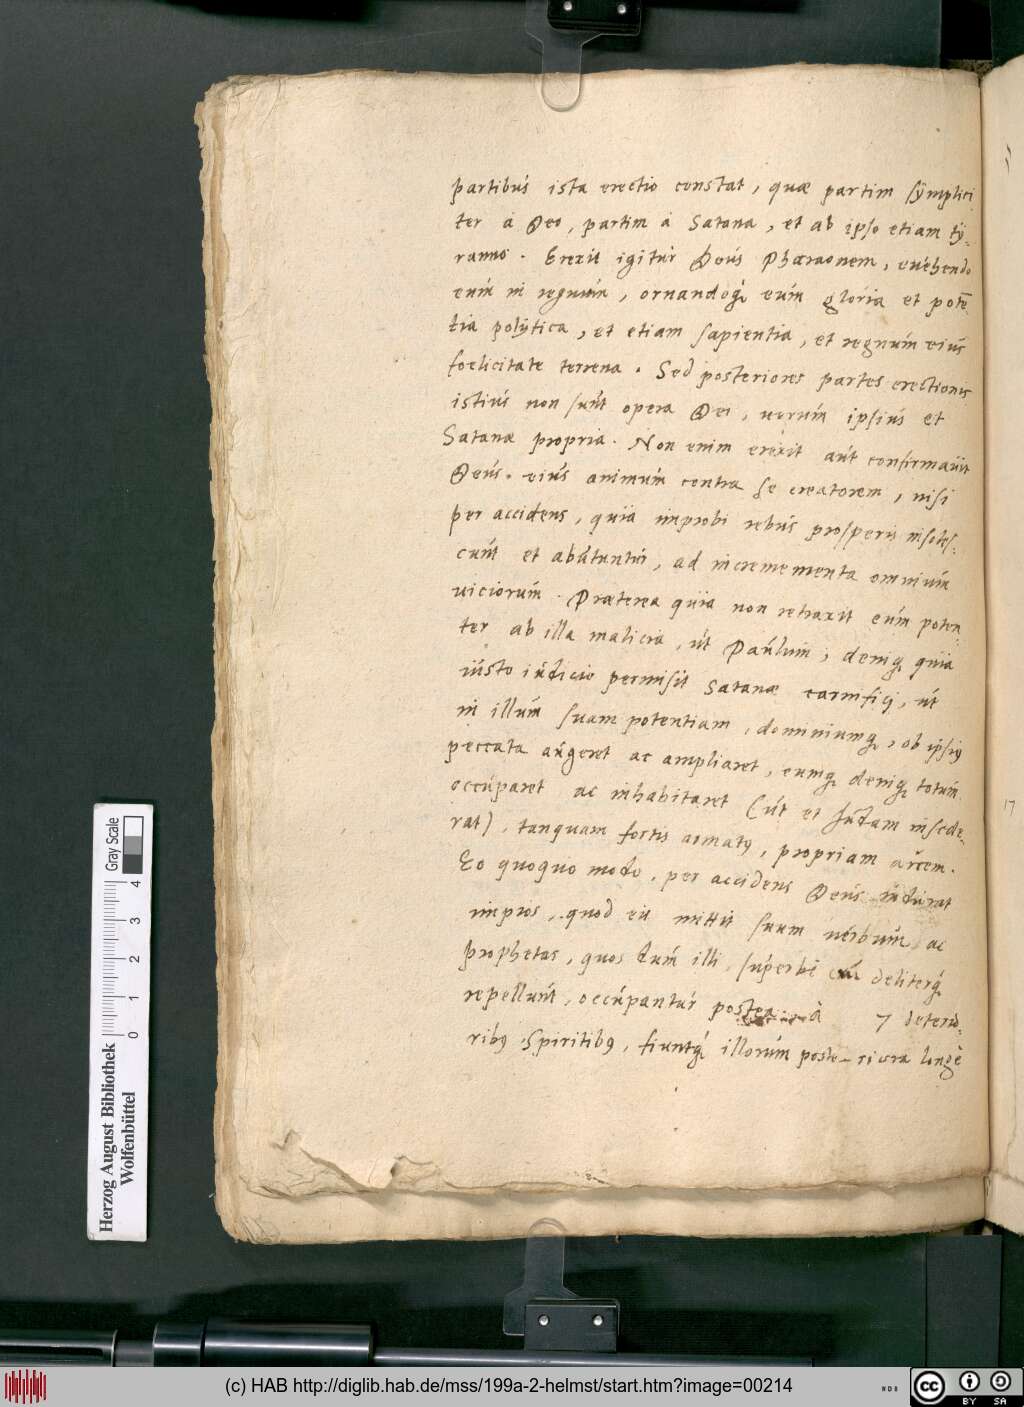 partibus ista erectio constat, quae partim sÿmplici
ter a Deo, partim à Satana, et ab ipso etiam tÿ-
ranno. Erexit igitur Deus Pharaonem, euehendo
eum in regnum, ornandoq; eum gloria et potē
tia polÿtica, et etiam sapientia, et regnum eius
foelicitate terrena. Sed posteriores partes erectionis
istius non sunt opera Dei, uerum ipsius et
Satanae propria. Non enim erexit aut confirmauit
Deus eius animum contra se creatorem, nisi
per accidens, quia improbi rebus prosperis insoles-
cunt et abutuntur, ad incremementa omnium
uiciorum. Praeterea quia non retraxit eum poten
ter ab illa malicia, ut Paulum, deniq; quia
iusto iudicio permisit Satanae carnifici, ut
in illum suam potentiam, dominiumq;, ob ipsiꝰ
peccata augeret ac ampliaret, eumq; deniq; totum
occuparet ac inhabitaret (ut et Judam insede-
rat), tanquam fortis armatꝰ, propriam arcem.
Eo quoquo modo, per accidens Deus indurat
impios, quod eis mittit suum uerbum ac
prophetas, quos dum illi, superbè deliterq;
repellunt, occupantur postea à 7 deterio-
ribꝰ Spiritibꝰ, fiuntq; illorum poste- riora longè
17
Gray Scale
0 1 2 3 4
Herzog August Bibliothek
Wolfenbüttel
(c) HAB http://diglib.hab.de/mss/199a-2-helmst/start.htm?image=00214
cc BY SA